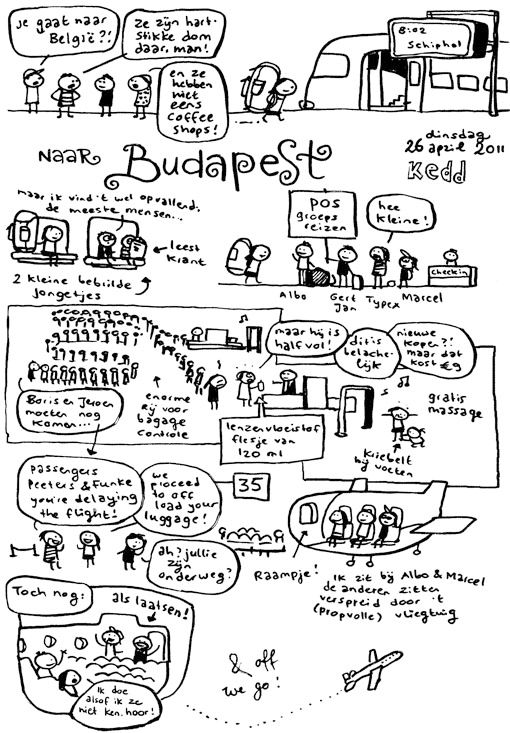 je gaat naar
België?!
ze zijn hart-
stikke dom
daar, man!
en ze
hebben
niet
eens
coffee
shops!
8:02
Schiphol
NAAR BudapeSt
dinsdag
26 april 2011
kedd
maar ik vind 't wel opvallend.
de meeste mensen...
leest
krant
2 kleine bebrilde
jongetjes
POS
groeps
reizen
hee
kleine!
check in
Albo
Gert
Jan
Typex
Marcel
Boris en Jeroen
moeten nog
komen...
enorme
rij voor
bagage
controle
maar hij is
half vol!
dit is
belache-
lijk
nieuwe
kopen?!
maar dat
kost €9
lenzenvloeistof
flesje van
120 ml
gratis
massage
kriebelt
bij voeten
passengers
Peeters & Funke
you're delaying
the flight!
we
proceed
to off
load your
luggage!
35
ah? jullie
zijn
onderweg?
Raampje!
Ik zit bij Albo & Marcel
de anderen zitten
verspreid door 't
(propvolle) vliegtuig
Toch nog:
als laatsen!
Ik doe
alsof ik ze
niet ken, hoor!
& off
we go!